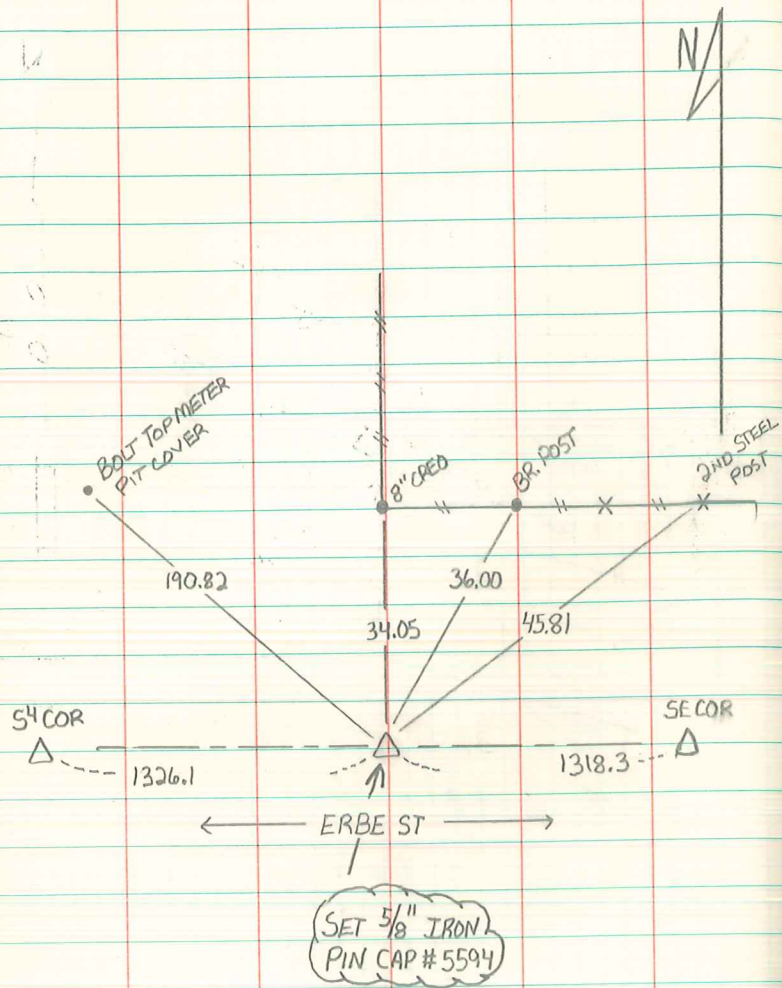 N
BOLT TOP METER
PIT COVER
8" CREO
BR. POST
2ND STEEL
POST
190.82
36.00
34.05
45.81
S4 COR
SE COR
1326.1
1318.3
ERBE ST
SET 5/8" IRON
PIN CAP #5594